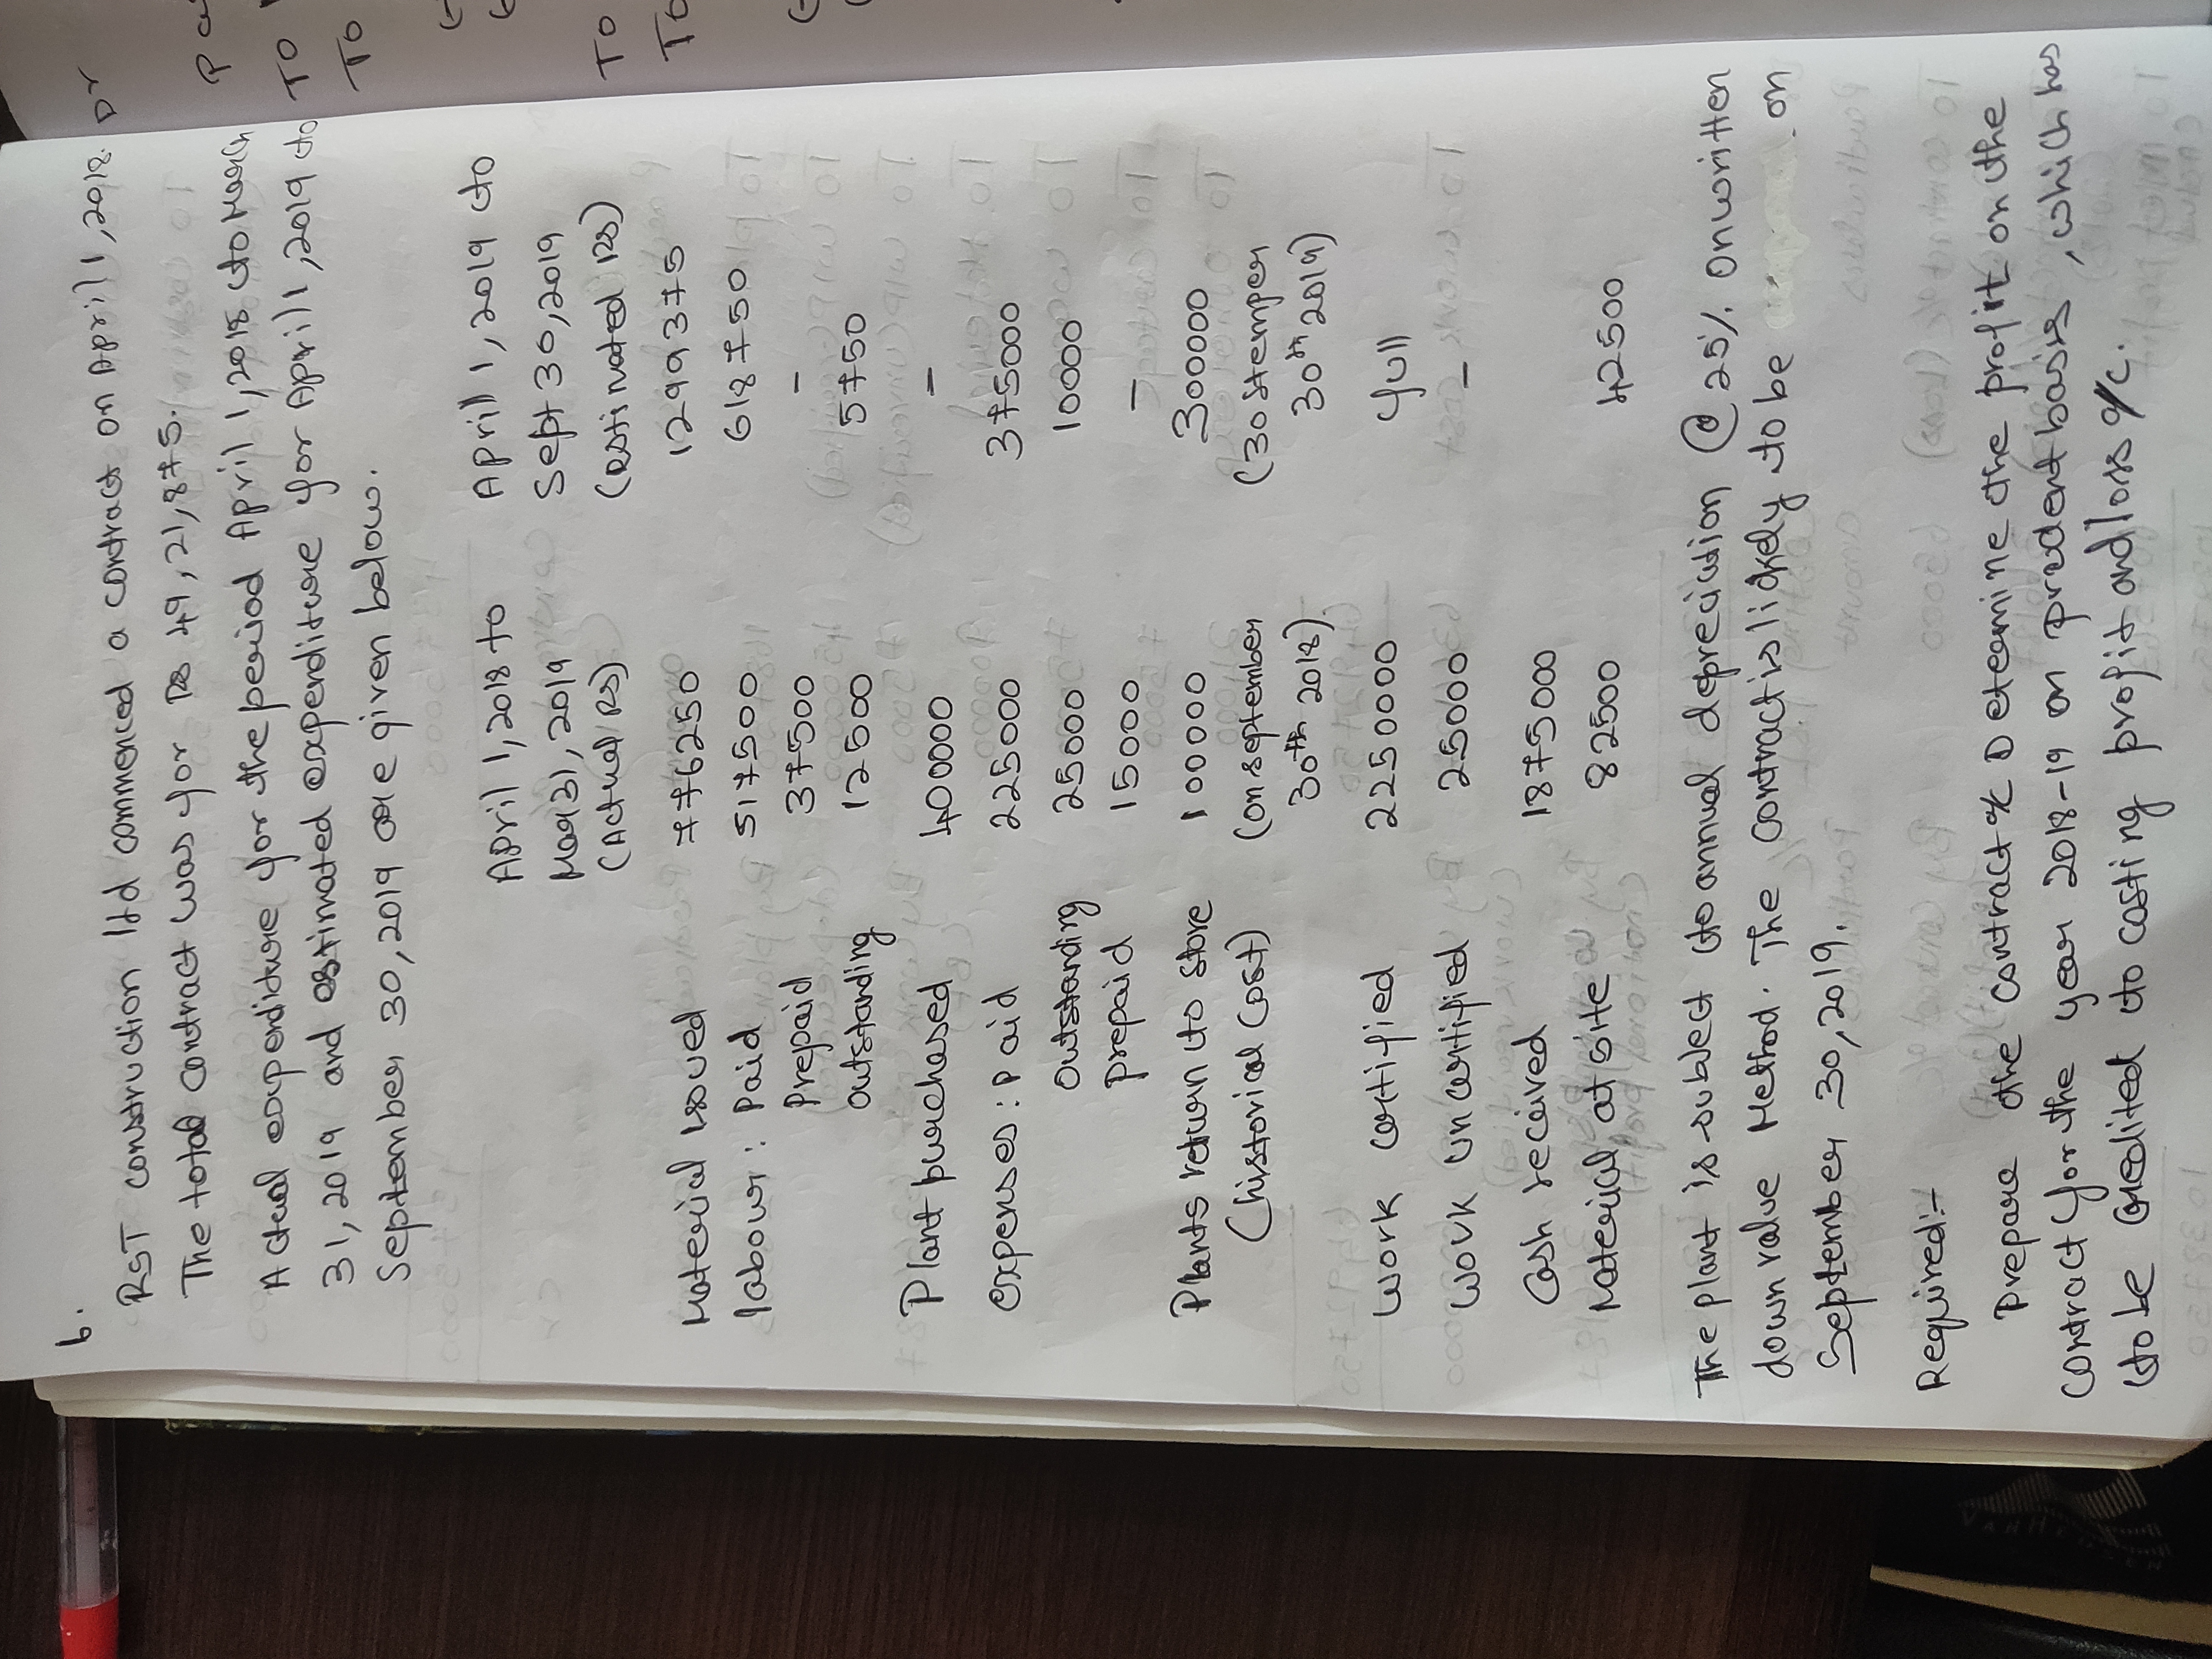 6.
RST construction ltd commenced a contract on April 1, 2018.
The total contract was for Rs 49,21,875.
Actual expenditure for the period April 1, 2018 to March
31, 2019 and estimated expenditure for April 1, 2019 to
September 30, 2019 are given below.
April 1, 2018 to April 1, 2019 to
Mar(31, 2019 Sept 30, 2019
(Actual RS) (estimated RS)
Material issued 776250 1299375
labour: Paid 517500 618750
Prepaid 37500 —
outstanding 12500 5750
Plant purchased 400000 —
expenses: paid 225000 375000
outstanding 25000 10000
prepaid 15000 —
Plants return to store 100000 300000
(historical cost) (on september (30 stemper
30th 2018) 30th 2019)
work certified 2250000 full
work uncertified 25000 —
Cash received 1875000
Material at site 82500 42500
The plant is subject to annual depreciation @ 25% on written
down value Method. The contract is likely to be on
September 30, 2019.
Required:-
Prepare the contract a/c Determine the profit on the
contract for the year 2018-19 on prudent basis, which has
to be credited to costing profit and loss a/c.
Dr
To
To
To
To
VANHEUSEN